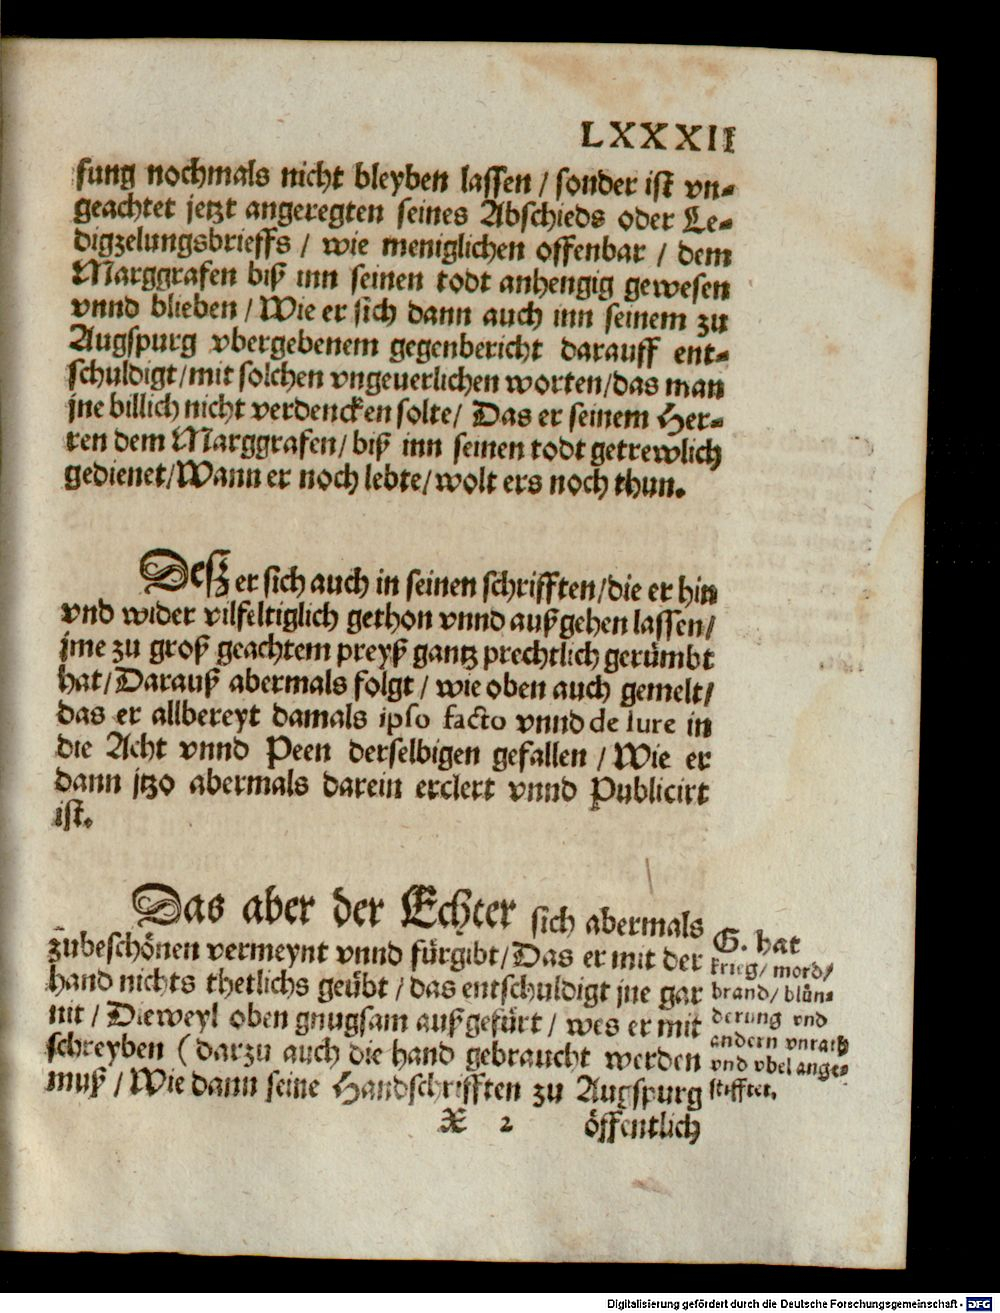 LXXXII
sung nochmals nicht bleyben lassen / sonder ist vn-
geachtet jetzt angeregten seines Abschieds oder Le-
digzelungsbrieffs / wie meniglichen offenbar / dem
Marggrafen biß inn seinen todt anhengig gewesen
vnnd blieben / Wie er sich dann auch inn seinem zu
Augspurg vbergebenem gegenbericht darauff ent-
schuldigt / mit solchen vngeuerlichen worten / das man
jne billich nicht verdencken solte / Das er seinem Her-
ren dem Marggrafen / biß inn seinen todt getrewlich
gedienet / Wann er noch lebte / wolt ers noch thun.
Desz er sich auch in seinen schrifften / die er hin
vnd wider vilfeltiglich gethon vnnd außgehen lassen /
jme zu groß geachtem preyß gantz prechtlich gerümbt
hat / Darauß abermals folgt / wie oben auch gemelt /
das er allbereyt damals ipso facto vnnd de iure in
die Acht vnnd Peen derselbigen gefallen / Wie er
dann jtzo abermals darein erclert vnnd Publicirt
ist.
Das aber der Echter sich abermals
zubeschönen vermeynt vnnd fürgibt / Das er mit der
hand nichts thetlichs geübt / das entschuldigt jne gar
nit / Dieweyl oben gnugsam außgefürt / wes er mit
schreyben (darzu auch die hand gebraucht werden
muß / Wie dann seine Handschrifften zu Augspurg
G. hat
krieg / mord /
brand / blün-
derung vnd
andern vnrath
vnd vbel ange-
stifftet.
X 2 öffentlich
Digitalisierung gefördert durch die Deutsche Forschungsgemeinschaft - DFG